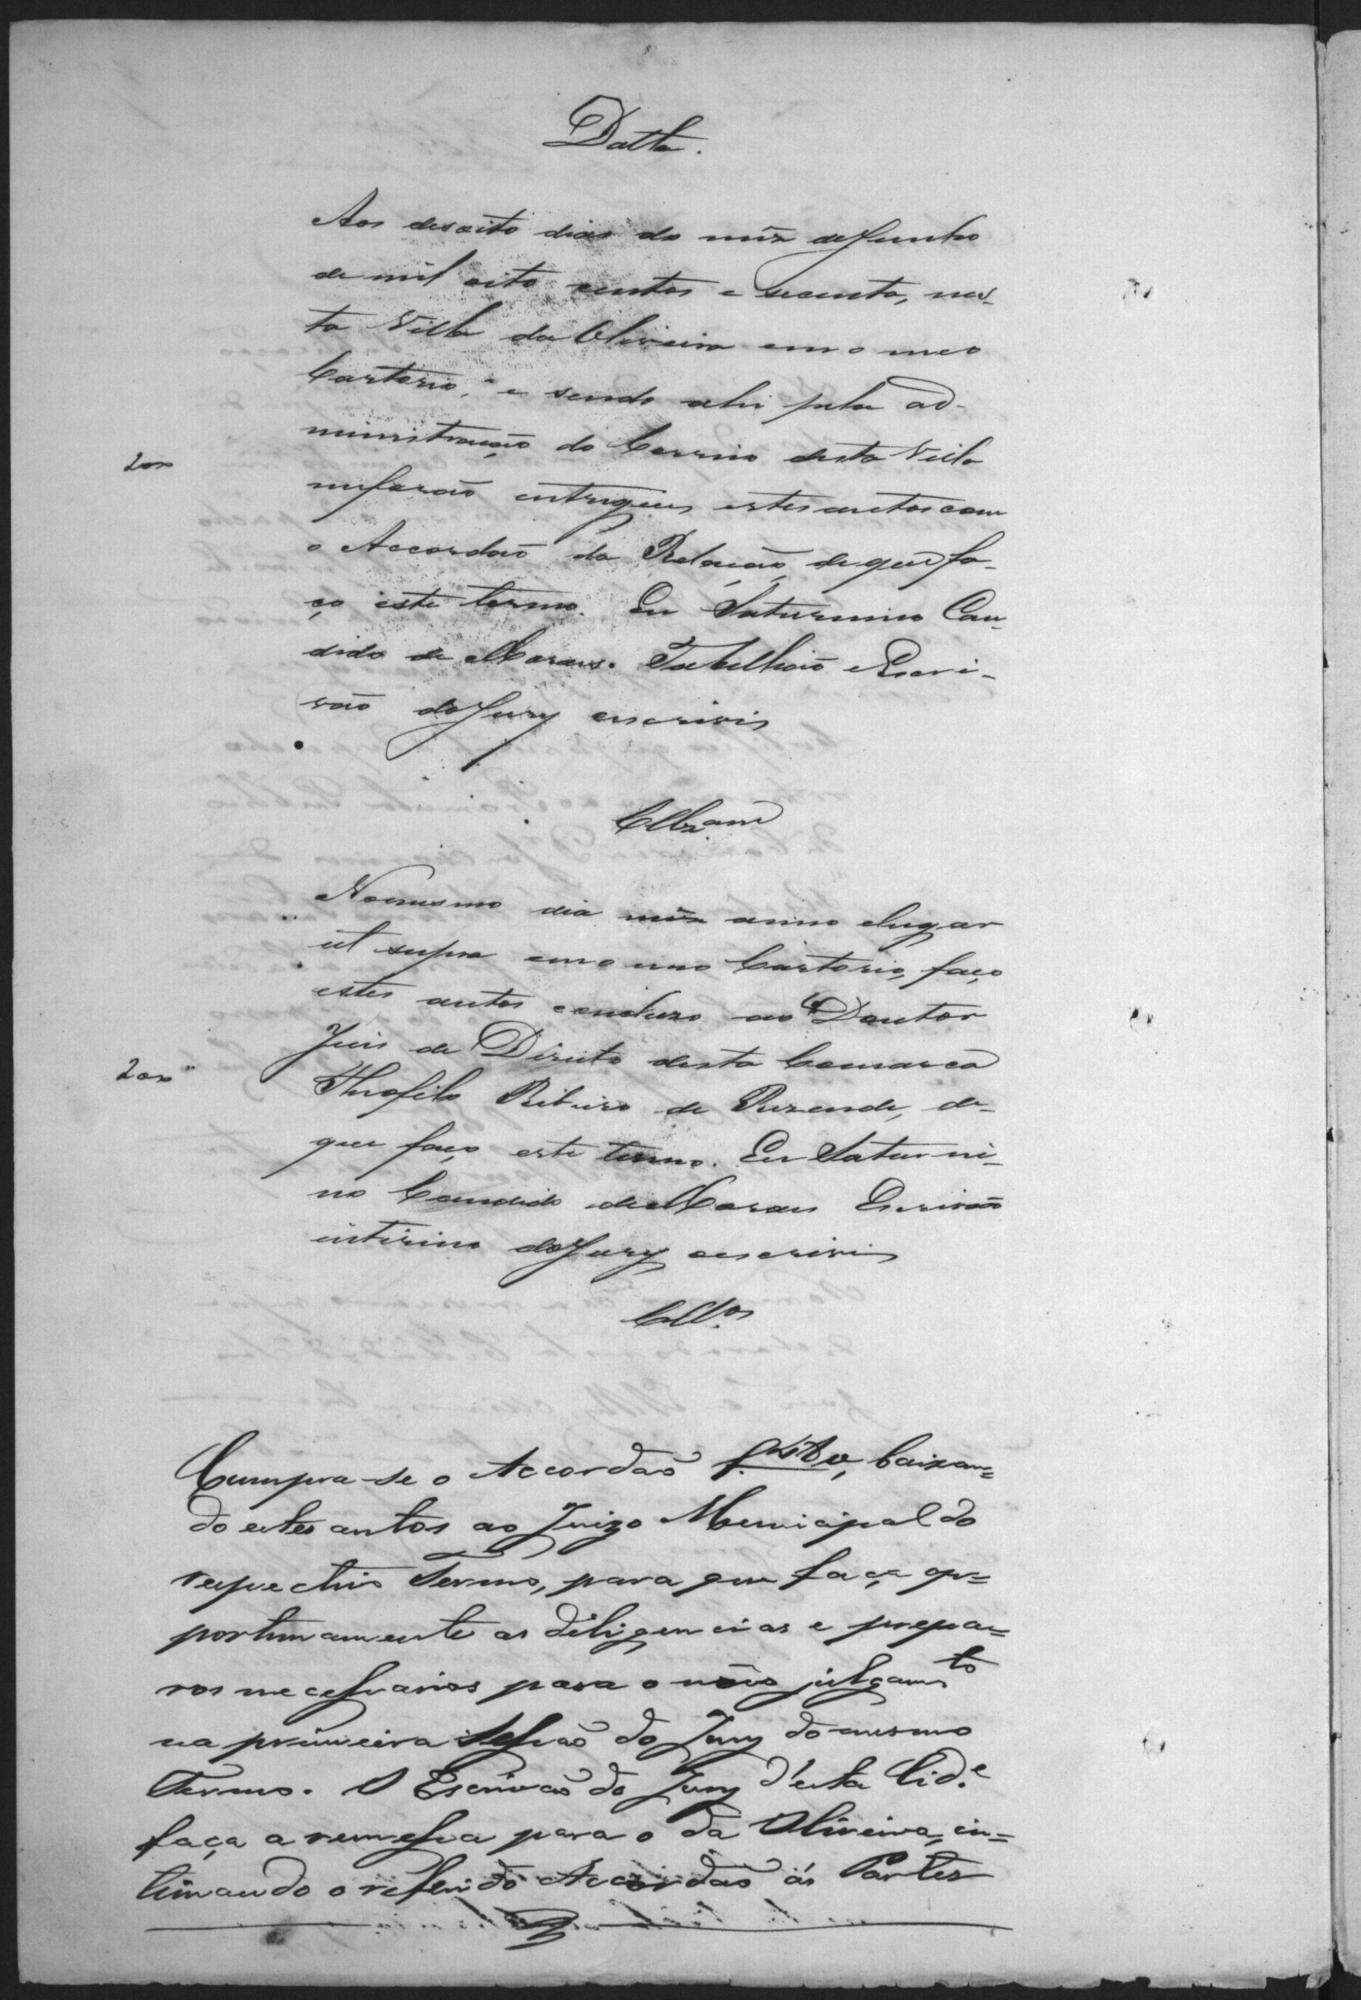 Datta.
Aos desoito dias do mês de Junho
de mil oito centos e secenta, nes-
ta Villa da Oliveira em o meo
Cartorio, e sendo ahi pela ad-
ministração do Correio desta Villa
200
me forão entregues estes autos com
o Accordão da Relação, de que fa-
ço este termo. Eu Saturnino Can-
dido de Moraes. Tabellião e Escri-
vão do Jury escrivis
Cllzam
No mesmo dia mês anno e lugar
ut supra em o meo Cartorio, faço
estes autos concluzo ao Doutor
Juis de Direito desta Comarca
200
Theofilo Ribeiro de Rezende, de
que faço este termo. Eu Saturni-
no Candido de Moraes Escrivão
interino do Jury escrivis
Cllos
Cumpra-se o Accordão f. baixan=
do estes autos ao Juizo Municipal do
respectivo Termo, para que faça op=
portunamente as diligencias e prepa=
ros necessarios para o nôvo julgamto
na primeira Sessão do Jury do mesmo
Termo. O Escrivão do Jury d'esta Cide
faça a remessa para o da Oliveira, in=
timando o referido Accordão ás Partes